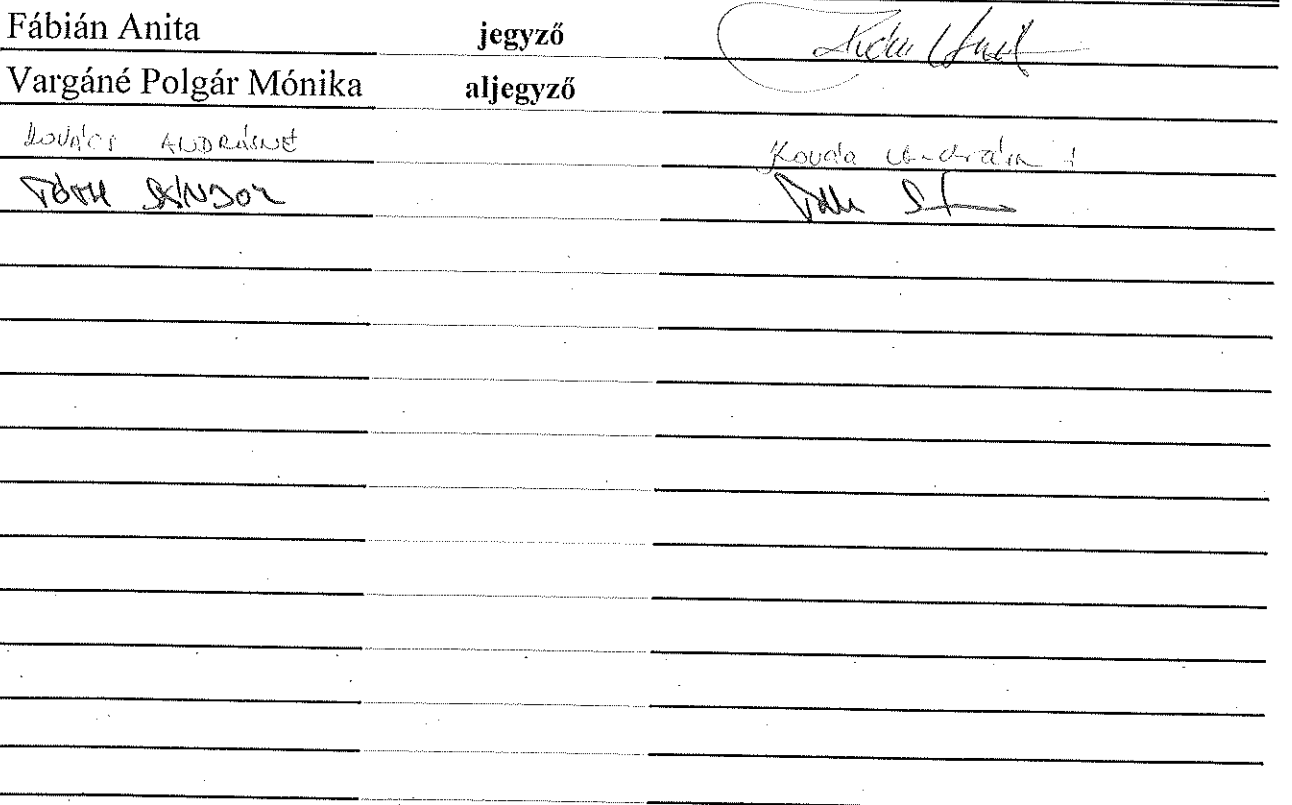 Fábián Anita jegyző
Vargáné Polgár Mónika aljegyző
KOVÁCS ANDRÁSNÉ Kovács Andrásné
TÓTH SÁNDOR Tóth